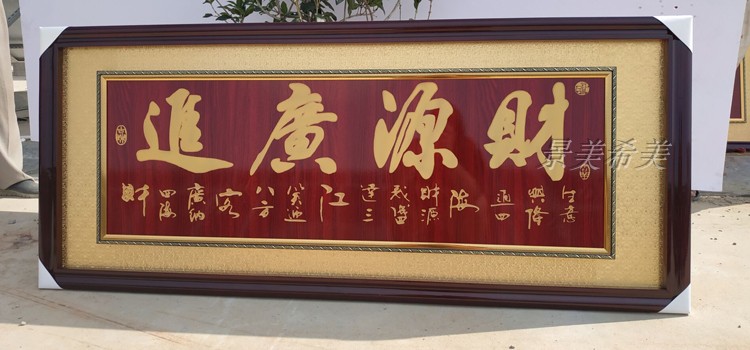 財源廣進
生意興隆通四海財源茂盛達三江笑迎八方客廣納四海財
景美希美